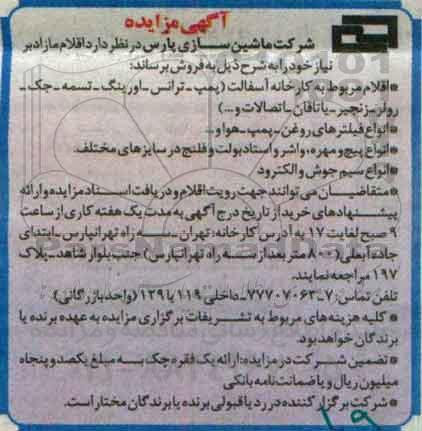 آگهی مزایده
شرکت ماشین سازی پارس در نظر دارد اقلام مازاد بر
نیاز خود را به شرح ذیل به فروش برساند:
*اقلام مربوط به کارخانه آسفالت (پمپ - ترانس - اورینگ - تسمه - جک -
رولر - زنجیر - یاتاقان - اتصالات و...)
*انواع فیلترهای روغن - پمپ - هوا و...
*انواع پیچ و مهره، واشر و استاد بولت و فلنج در سایزهای مختلف.
*انواع سیم جوش و الکترود
*متقاضیان می توانند جهت رویت اقلام و دریافت اسناد مزایده و ارائه
پیشنهادهای خرید از تاریخ درج آگهی به مدت یک هفته کاری از ساعت
۹ صبح لغایت ۱۷ به آدرس کارخانه: تهران - سه راه تهرانپارس - ابتدای
جاده آبعلی (۸۰۰ متر بعد از سه راه تهرانپارس) جنب بلوار شاهد - پلاک
۱۹۷ مراجعه نمایند.
تلفن تماس: ۷-۷۷۷۰۷۰۶۳ - داخلی ۱۱۹ یا ۱۲۹ (واحد بازرگانی)
* کلیه هزینه های مربوط به تشریفات برگزاری مزایده به عهده برنده یا
برندگان خواهد بود.
* تضمین شرکت در مزایده: ارائه یک فقره چک به مبلغ یکصد و پنجاه
میلیون ریال و یا ضمانت نامه بانکی
*شرکت برگزار کننده در رد یا قبولی برنده یا برندگان مختار است.
۱۹